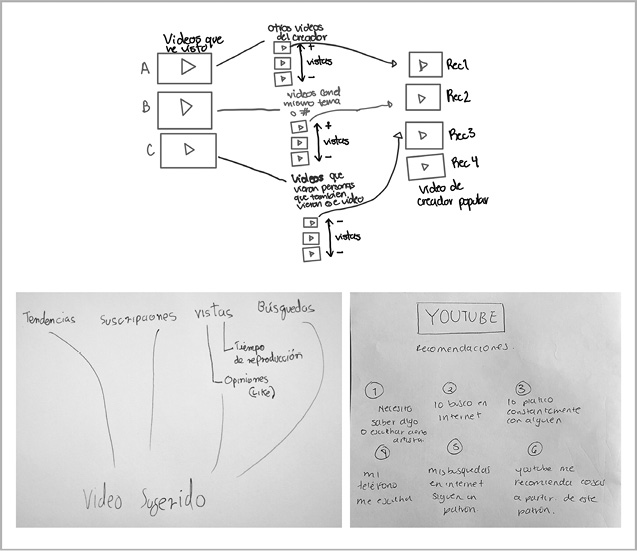 Videos que
he visto
A
B
C
otros videos
del creador
+
vistas
-
videos con el
mismo tema
o #
+
vistas
-
Videos que
vieron personas
que también
vieron ese video
-
vistas
-
Rec1
Rec2
Rec3
Rec4
video de
creador popular
Tendencias
Suscripciones
vistas
Búsquedas
Tiempo
de reproducción
Opiniones
(Like)
Video Sugerido
YOUTUBE
Recomendaciones.
1
Necesito
saber algo
o escuchar cierto
artista
2
lo busco en
internet
3
lo platico
constantemente
con alguien
4
mi
teléfono
me escucha
5
mis busquedas
en internet
siguen un
patrón
6
youtube me
recomienda cosas
a partir de este
patrón.